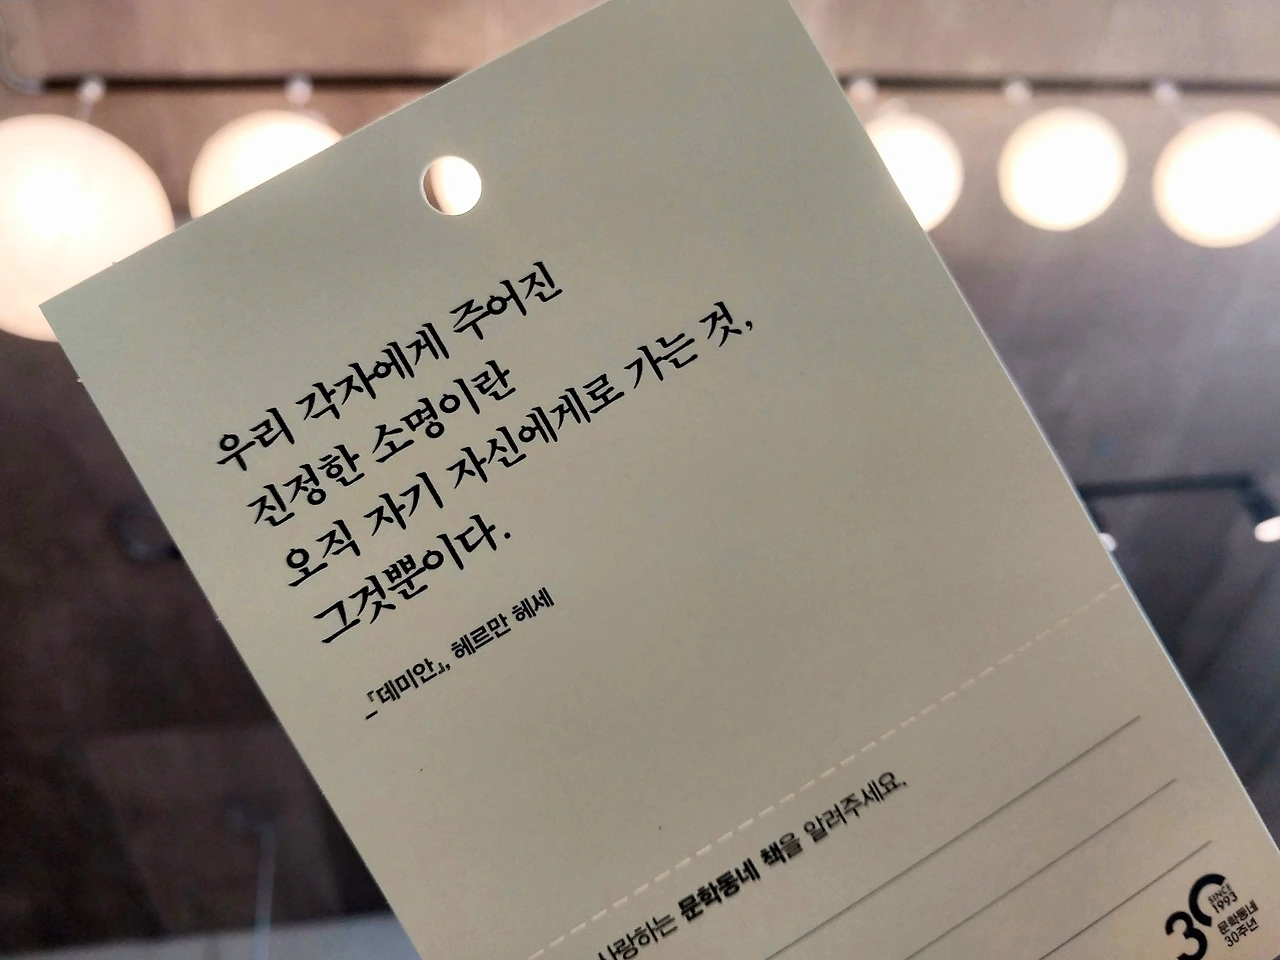 우리 각자에게 주어진
진정한 소명이란
오직 자기 자신에게로 가는 것,
그것뿐이다.
_『데미안』, 헤르만 헤세
사랑하는 문학동네 책을 알려주세요.
30
SINCE
1993
문학동네
30주년